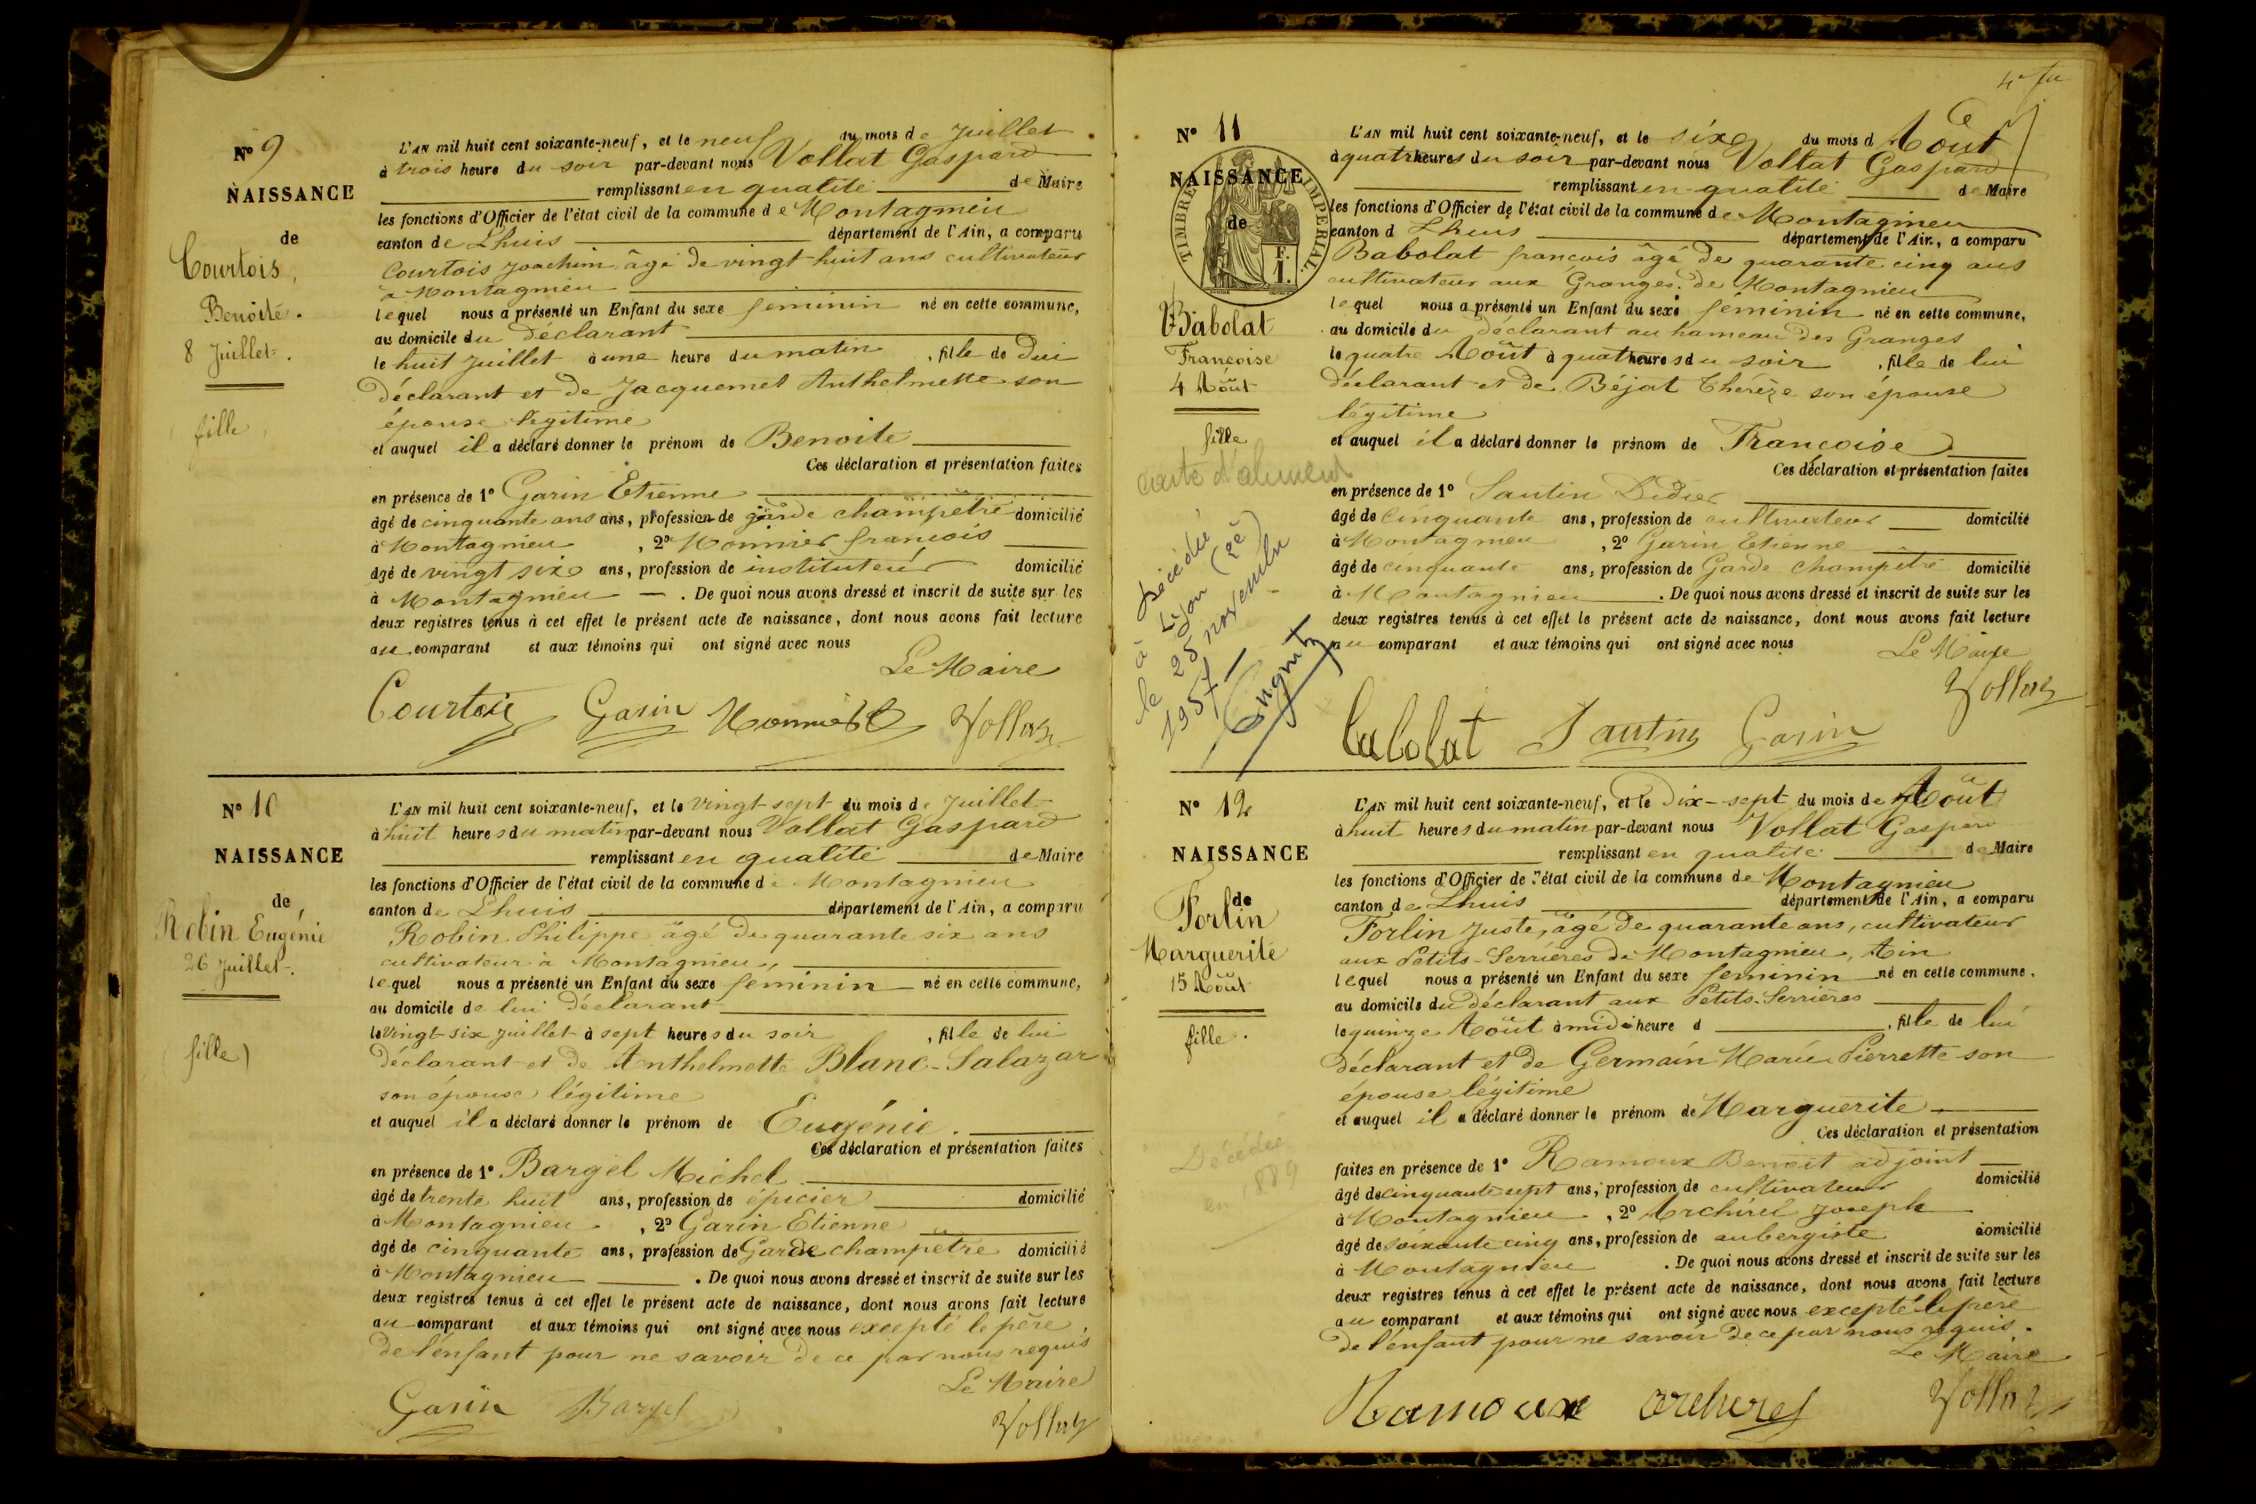 Nº 9
NAISSANCE
de
Courtois,
Benoite.
8 Juillet.
fille
L'AN mil huit cent soixante-neuf, et le neuf du mois de Juillet
à trois heure du soir par-devant nous Vollat Gaspard
remplissant en qualité de Maire
les fonctions d'Officier de l'état civil de la commune de Montagnieu
canton de Lhuis département de l'Ain, a comparu
Courtois Joachim âgé de vingt-huit ans cultivateur
à Montagnieu
lequel nous a présenté un Enfant du sexe féminin né en cette commune,
au domicile du déclarant
le huit Juillet à une heure du matin, fille de lui
déclarant et de Jacquemet Anthelmette son
épouse légitime
et auquel il a déclaré donner le prénom de Benoite
Ces déclaration et présentation faites
en présence de 1º Garin Etienne
âgé de cinquante ans ans, profession de garde champêtre domicilié
à Montagnieu, 2º Monnier françois
âgé de vingt six ans, profession de instituteur domicilié
à Montagnieu. De quoi nous avons dressé et inscrit de suite sur les
deux registres tenus à cet effet le présent acte de naissance, dont nous avons fait lecture
au comparant et aux témoins qui ont signé avec nous
Le Maire
Courtois Garin Monnier Vollat
Nº 10
NAISSANCE
de
Robin Eugénie
26 Juillet.
fille
L'AN mil huit cent soixante-neuf, et le vingt-sept du mois de Juillet
à huit heures du matin par-devant nous Vollat Gaspard
remplissant en qualité de Maire
les fonctions d'Officier de l'état civil de la commune de Montagnieu
canton de Lhuis département de l'Ain, a comparu
Robin Philippe âgé de quarante six ans
cultivateur à Montagnieu,
lequel nous a présenté un Enfant du sexe féminin né en cette commune,
au domicile de lui déclarant
le vingt-six Juillet à sept heures du soir, fille de lui
déclarant et de Anthelmette Blanc-Salazar
son épouse légitime
et auquel il a déclaré donner le prénom de Eugénie.
Ces déclaration et présentation faites
en présence de 1º Bargel Michel
âgé de trente huit ans, profession de épicier domicilié
à Montagnieu, 2º Garin Etienne
âgé de cinquante ans, profession de Garde champêtre domicilié
à Montagnieu. De quoi nous avons dressé et inscrit de suite sur les
deux registres tenus à cet effet le présent acte de naissance, dont nous avons fait lecture
au comparant et aux témoins qui ont signé avec nous excepté le père
de l'enfant pour ne savoir de ce par nous requis
Le Maire
Garin Bargel Vollat
Nº 11
NAISSANCE
de
TIMBRE IMPERIAL.
F.
1.
Babolat
Françoise
4 Août
fille
carte d'aliment
Décédée
à Lyon (2e)
le 25 novembre
1957
L'AN mil huit cent soixante-neuf, et le six du mois d Août
à quatre heures du soir par-devant nous Vollat Gaspard
remplissant en qualité de Maire
les fonctions d'Officier de l'état civil de la commune de Montagnieu
canton d Lhuis département de l'Ain, a comparu
Babolat françois âgé de quarante cinq ans
cultivateur aux Granges de Montagnieu
lequel nous a présenté un Enfant du sexe féminin né en cette commune,
au domicile du déclarant au hameau des Granges
le quatre Août à quatre heures du soir, fille de lui
déclarant et de Béjat Thérèze son épouse
légitime
et auquel il a déclaré donner le prénom de Françoise
Ces déclaration et présentation faites
en présence de 1º Santin Didier
âgé de cinquante ans, profession de cultivateur domicilié
à Montagnieu, 2º Garin Etienne
âgé de cinquante ans, profession de Garde champêtre domicilié
à Montagnieu. De quoi nous avons dressé et inscrit de suite sur les
deux registres tenus à cet effet le présent acte de naissance, dont nous avons fait lecture
au comparant et aux témoins qui ont signé avec nous
Le Maire
Vollat
Babolat Santin Garin
Nº 12
NAISSANCE
de
Forlin
Marguerite
15 Août
fille.
Décédée
en 1889
L'AN mil huit cent soixante-neuf, et le Dix-sept du mois de Août
à huit heures du matin par-devant nous Vollat Gaspard
remplissant en qualité de Maire
les fonctions d'Officier de l'état civil de la commune de Montagnieu
canton de Lhuis département de l'Ain, a comparu
Forlin Juste, âgé de quarante ans, cultivateur
aux Petits-Serrières de Montagnieu, Ain
lequel nous a présenté un Enfant du sexe féminin né en cette commune.
au domicile du déclarant aux Petits-Serrières
le quinze Août à midi heure d, fille de lui
déclarant et de Germain Marie Pierrette son
épouse légitime
et auquel il a déclaré donner le prénom de Marguerite
Ces déclaration et présentation
faites en présence de 1º Ramoux Benoit adjoint
âgé de cinquante sept ans, profession de cultivateur domicilié
à Montagnieu, 2º Archirel Joseph
âgé de soixante cinq ans, profession de aubergiste domicilié
à Montagnieu. De quoi nous avons dressé et inscrit de suite sur les
deux registres tenus à cet effet le présent acte de naissance, dont nous avons fait lecture
au comparant et aux témoins qui ont signé avec nous excepté le père
de l'enfant pour ne savoir de ce par nous requis.
Le Maire
Ramoux Archirel Vollat